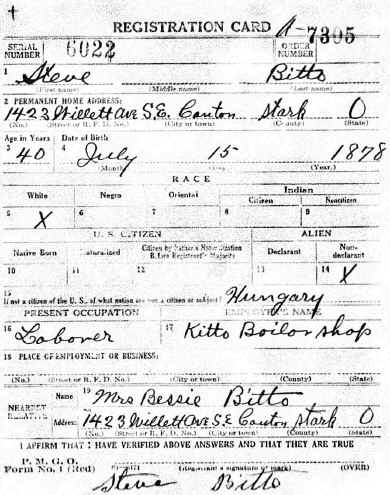 REGISTRATION CARD A-7305
SERIAL NUMBER 6022 ORDER NUMBER
1 Steve Bitto
(First name) (Middle name) (Last name)
2 PERMANENT HOME ADDRESS:
1423 Willett Ave S.E. Canton Stark O
(No.) (Street or R. F. D. No.) (City or town) (County) (State)
Age in Years Date of Birth
3 40 4 July 15 1878
(Month) (Day) (Year.)
RACE
White Negro Oriental Indian
Citizen Noncitizen
5 X 6 7 8 9
U. S. CITIZEN ALIEN
Native Born Naturalized Citizen by Father's Naturalization Before Registrant's Majority Declarant Non-declarant
10 11 12 13 14 X
15
If not a citizen of the U. S., of what nation are you a citizen or subject? Hungary
PRESENT OCCUPATION EMPLOYER'S NAME
16 Laborer 17 Kitto Boilor shop
18 PLACE OF EMPLOYMENT OR BUSINESS:
(No.) (Street or R. F. D. No.) (City or town) (County) (State)
NEAREST RELATIVE Name 19 Mrs Bessie Bitto
Address 1423 Willett Ave S.E Canton Stark O
(No.) (Street or R. F. D. No.) (City or town) (County) (State)
I AFFIRM THAT I HAVE VERIFIED ABOVE ANSWERS AND THAT THEY ARE TRUE
P. M. G. O.
Form No. 1 (Red) (Registrant's signature or mark) (OVER)
Steve Bitto